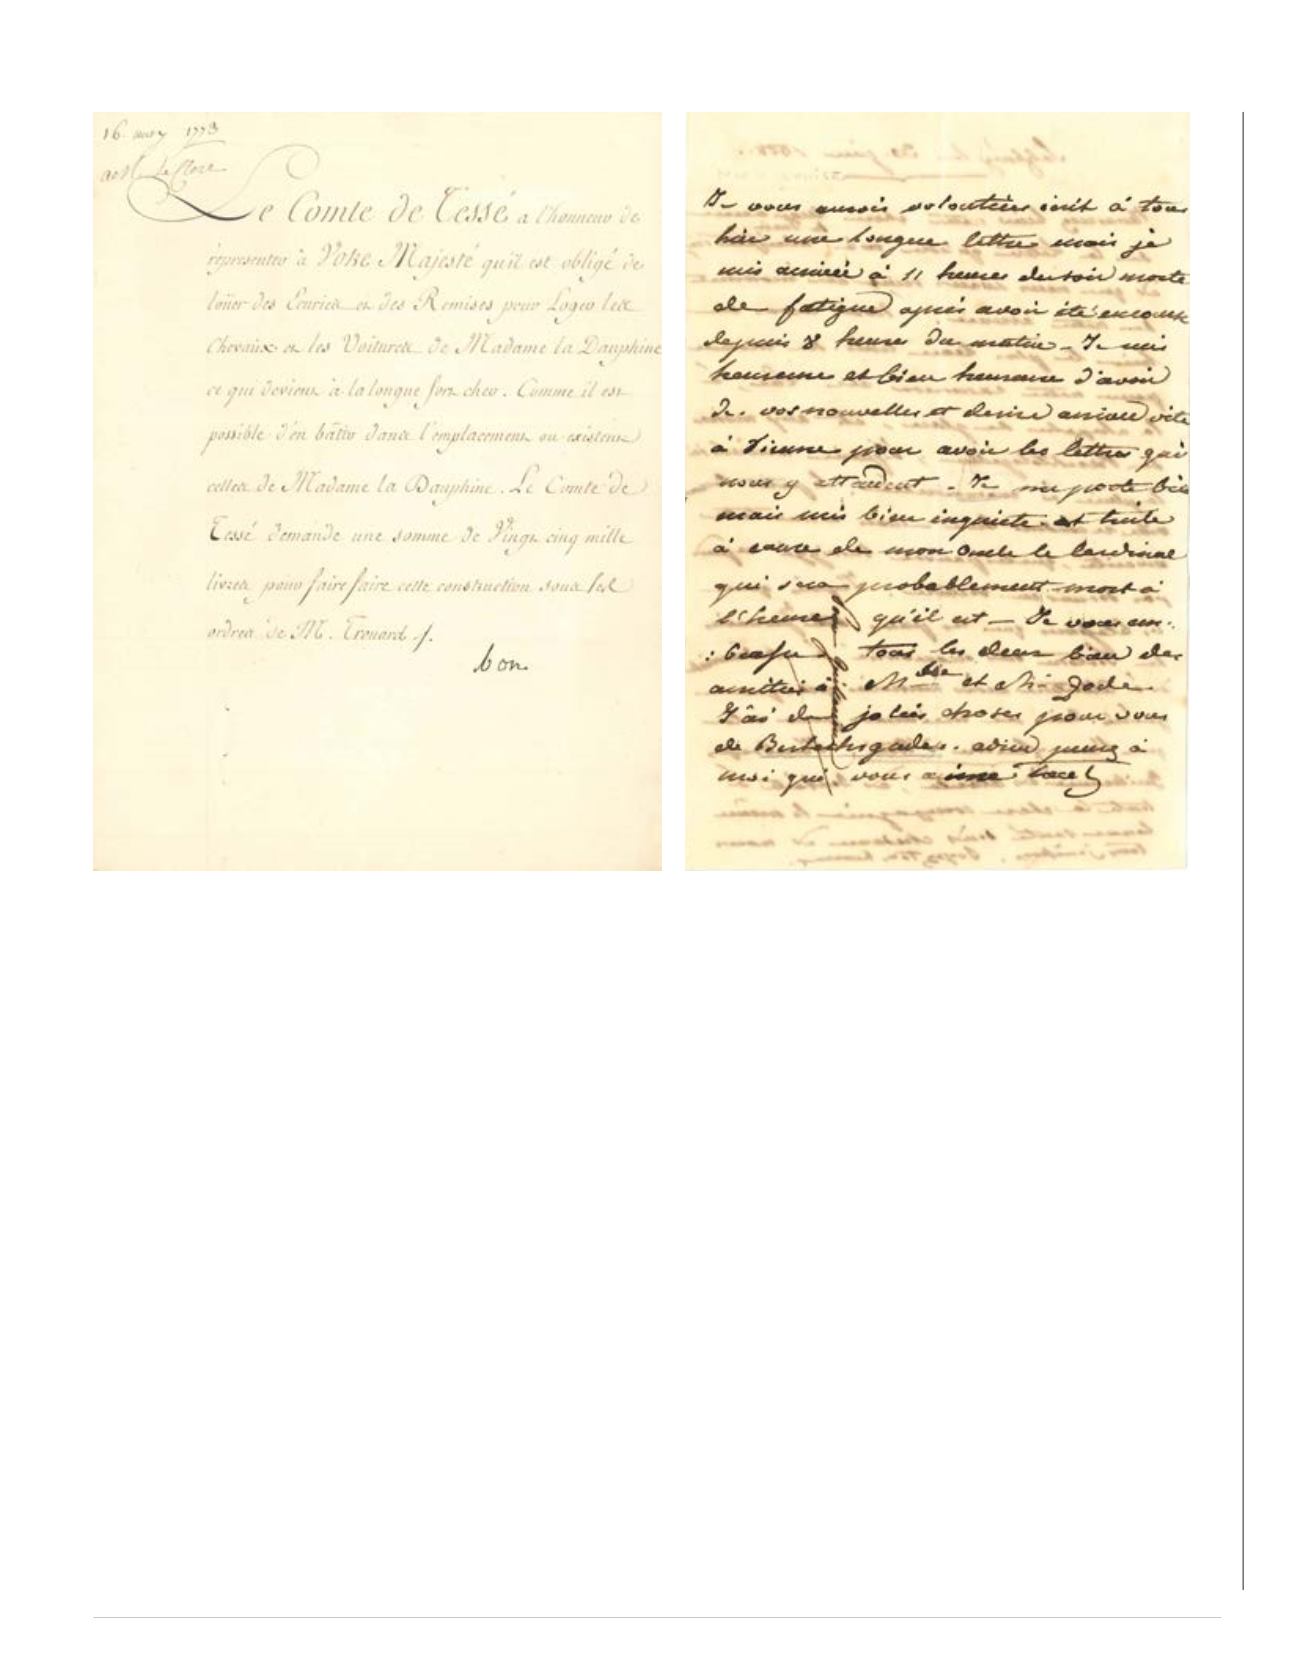 16. mars 1773
Le Comte de Tessé a l'honneur de
représenter à Votre Majesté qu'il est obligé de
loüer des Ecuries et des Remises pour Loger les
Chevaux et les Voitures de Madame la Dauphine
ce qui devient à la longue fort cher. Comme il est
possible d'en bâtir dans l'emplacement ou existent
celles de Madame la Dauphine. Le Comte de
Tessé demande une somme de Vingt cinq mille
livres pour faire faire cette construction sous les
ordres de M. Trouard
bon
Je vous aurois volontiers écrit à tous
hier une longue lettre mais je
suis arrivée à 11 heures du soir morte
de fatigue après avoir été en course
depuis 8 heures du matin - Je suis
heureuse et bien heureuse d'avoir
de vos nouvelles et desire arriver vite
à Vienne pour avoir les lettres qui
nous y attendent - Je me porte bien
mais suis bien inquiete et triste
à cause de mon Oncle le Cardinal
qui sera probablement mort à
l'heure qu'il est - Je vous em-
:brasse tous les deux bien des
amitiés à Mme et Mr
J'ai de jolies choses pour vous
de adieu pensez à
moi qui vous aime